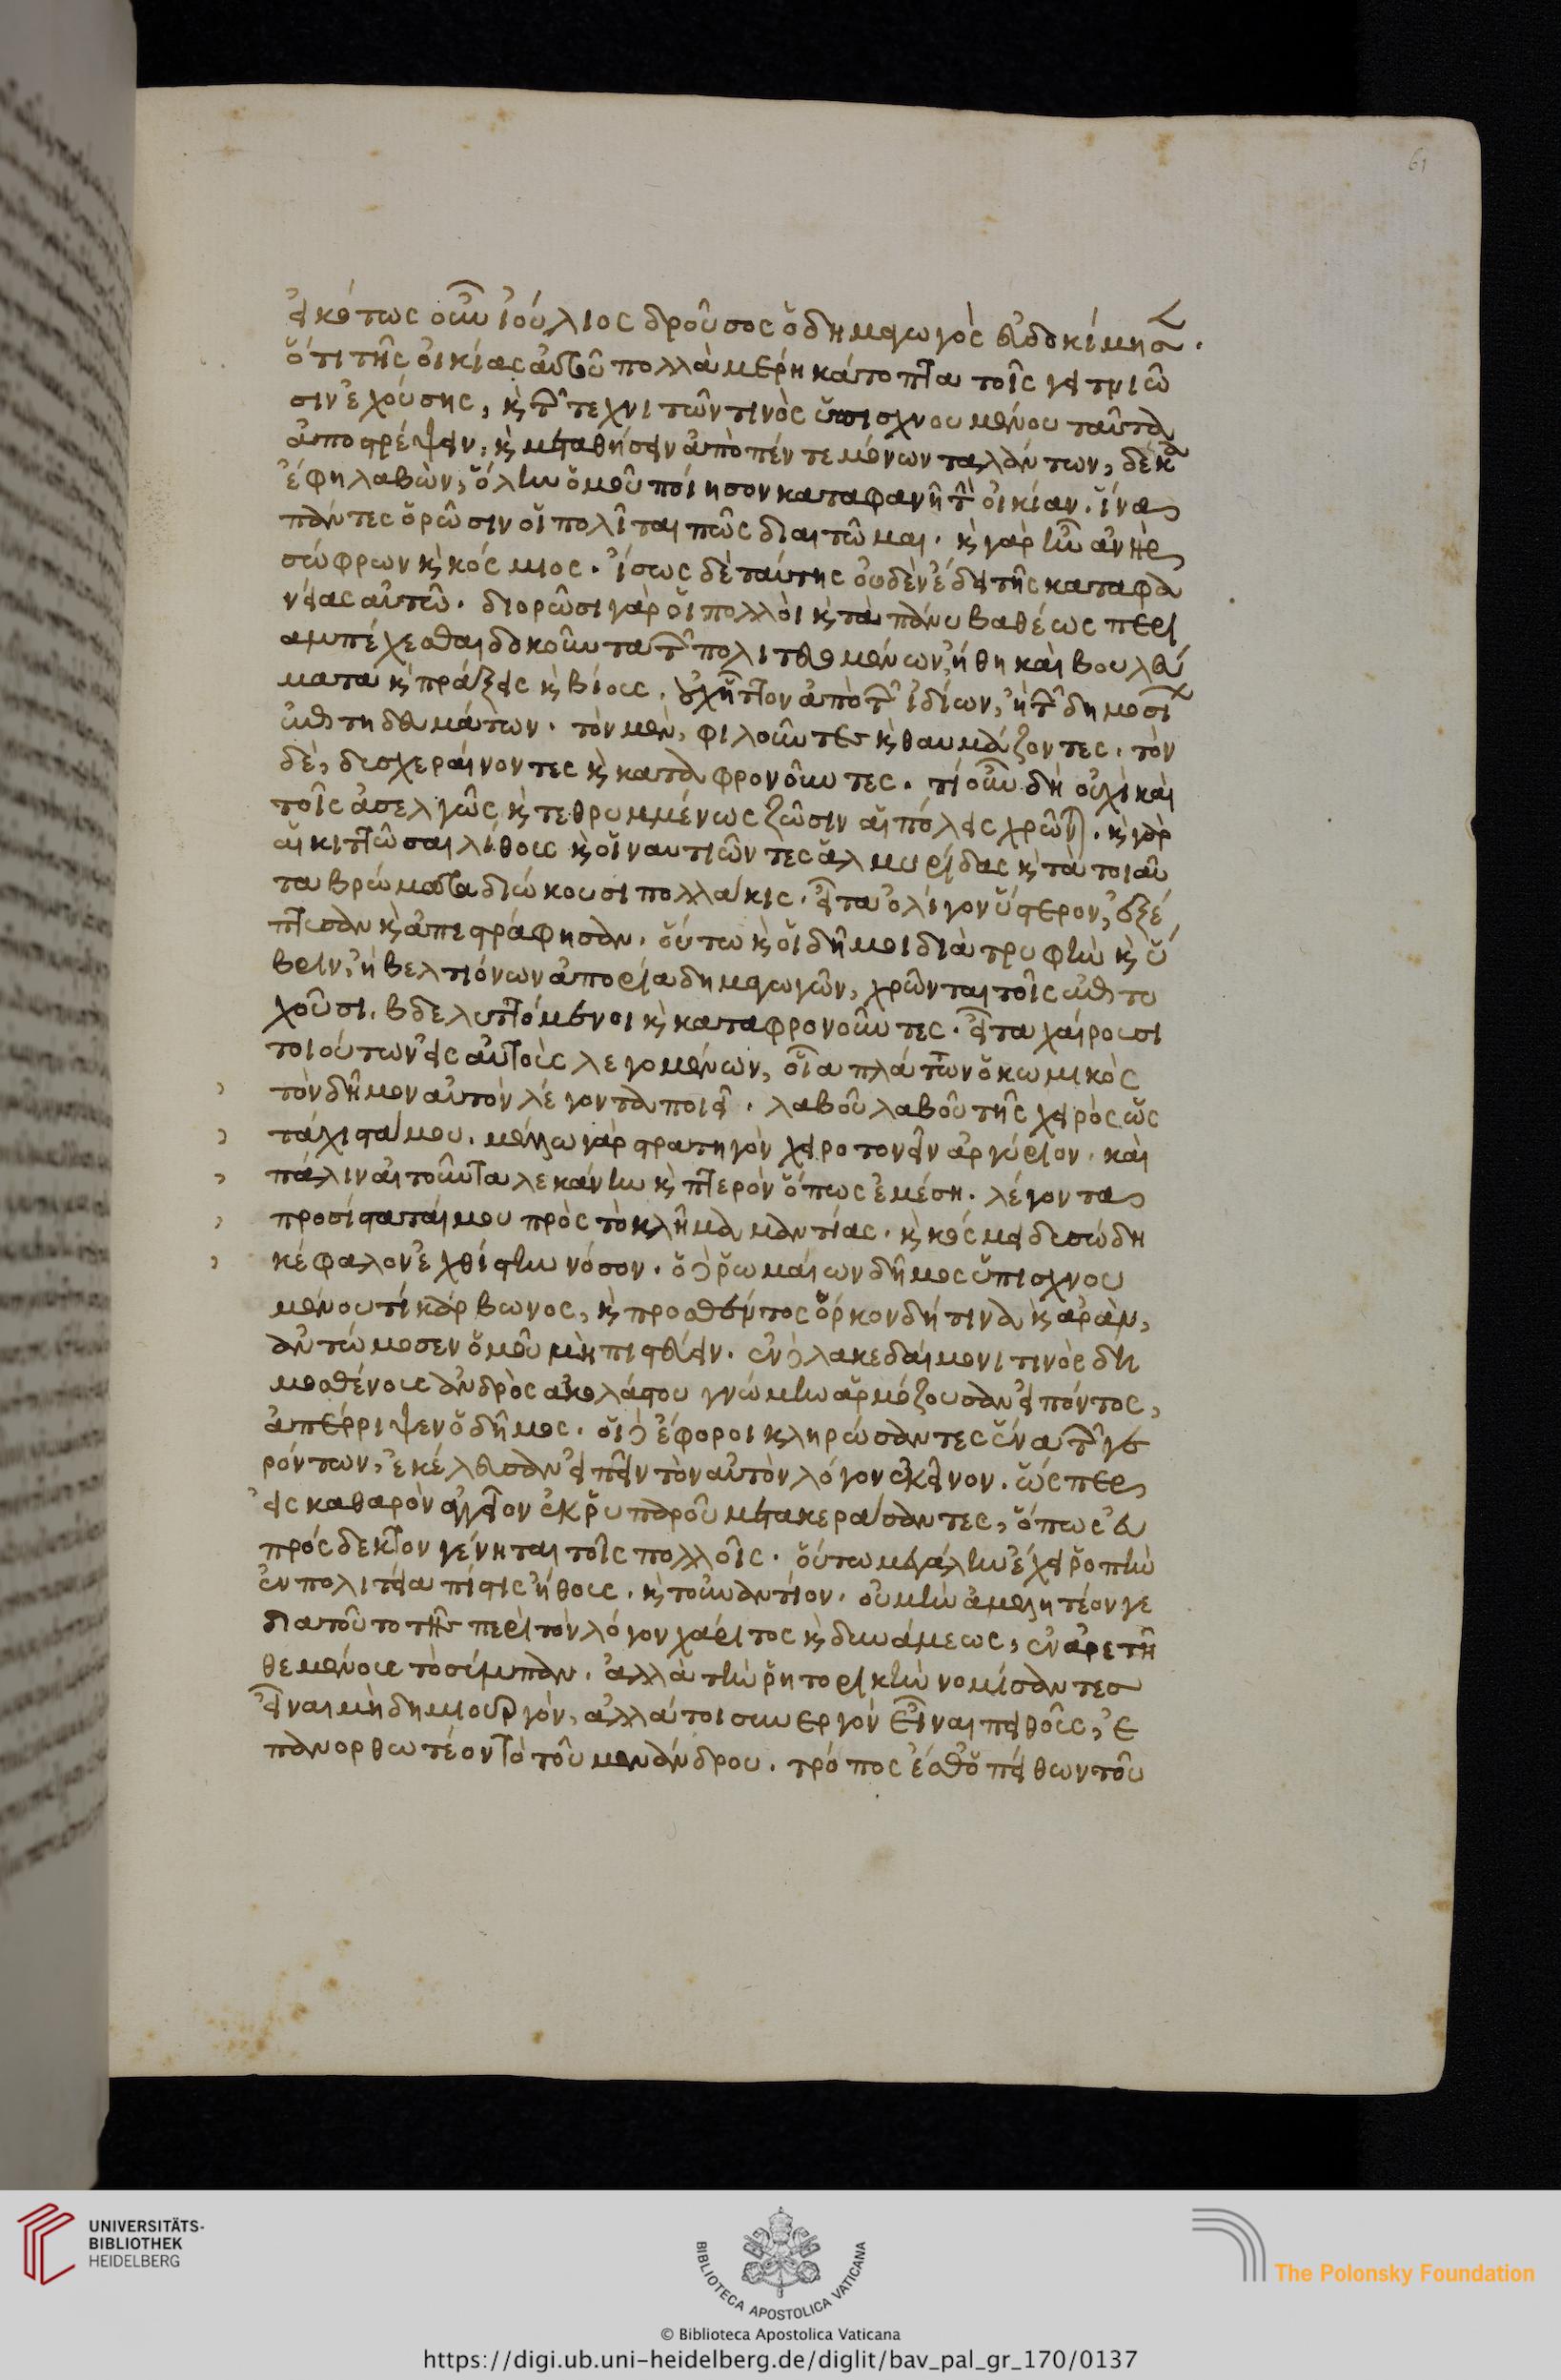 61
εἰκότως οὖν ἰούλιος δροῦσος ὁ δημαγωγὸς εὐδοκίμησεν.
ὅτι τῆς οἰκίας αὐτοῦ πολλὰ μέρη κάτοπτα τοῖς γειτνιῶ
σιν ἐχούσης, καὶ τῶν τεχνιτῶν τινὸς ὑπισχνουμένου ταῦτα
ἀποστρέψειν, καὶ μεταθήσειν ἀπὸ πέντε μόνων ταλάντων, δέκα
ἔφη λαβὼν, ὅλην ὁμοῦ ποίησον καταφανῆ τὴν οἰκίαν. ἵνα
πάντες ὁρῶσιν οἱ πολῖται πῶς διαιτῶμαι. καὶ γὰρ ἦν ἀνὴρ
σώφρων καὶ κόσμιος. ἴσως δὲ ταύτης οὐδὲν ἔδει τῆς καταφα
νείας αὐτῶ. διορῶσι γὰρ οἱ πολλοὶ καὶ τὰ πάνυ βαθέως περι
αμπέχεσθαι δοκοῦντα τῶν πολιτευομένων, ἤθη καὶ βουλεύ
ματα καὶ πράξεις καὶ βίους. οὐχ ἧττον ἀπὸ τῶν ἰδίων, ἢ τῶν δημοσίων
ἐπιτηδευμάτων. τὸν μὲν, φιλοῦντες καὶ θαυμάζοντες. τὸν
δὲ, δυσχεραίνοντες καὶ καταφρονοῦντες. τί οὖν δὴ οὐχὶ καὶ
τοῖς ἀσελγῶς καὶ τεθρυμμένως ζῶσιν αἱ πόλεις χρῶνται. καὶ γὰρ
αἱ κιττῶσαι λίθους καὶ οἱ ναυτιῶντες ἁλμυρίδας καὶ τὰ τοιαῦ
τα βρώματα διώκουσι πολλάκις. εἶτα ὀλίγον ὕστερον, ἐξέ
πτυσαν καὶ ἀπεστράφησαν. οὕτω καὶ οἱ δῆμοι διὰ τρυφὴν καὶ ὕ
βριν, ἢ βελτιόνων ἀπορία δημαγωγῶν, χρῶνται τοῖς ἐπιτυ
χοῦσι, βδελυττόμενοι καὶ καταφρονοῦντες. εἶτα χαίρουσι
τοιούτων εἰς αὐτοὺς λεγομένων, οἷα πλάτων ὁ κωμικὸς
τὸν δῆμον αὐτὸν λέγοντα ποιεῖ. λαβοῦ λαβοῦ τῆς χειρὸς ὡς
τάχιστά μου. μέλλω γὰρ στρατηγὸν χειροτονεῖν ἀργύριον. καὶ
πάλιν αἰτοῦντα λεκάνην καὶ πτερὸν ὅπως ἐμέση. λέγοντα
προσίσταταί μου πρὸς τὸ κλῆμα μαντίας. καὶ κόσμει δυσώδη
κέφαλον ἐχθίστην νόσον. ὁ δὲ ῥωμαίων δῆμος ὑπισχνου
μένου τί κάρβωνος, καὶ προσθέντος ὅρκον δή τινα καὶ ἀρὰν,
ἀντώμοσεν ὁμοῦ μὴ πιστεύειν. ἐν δὲ λακεδαίμονι τινὸς δη
μοσθένους ἀνδρὸς ἀκολάστου γνώμην ἁρμόζουσαν εἰπόντος,
ἀπέρριψεν ὁ δῆμος. οἱ δὲ ἔφοροι κληρώσαντες ἕνα τῶν γε
ρόντων, ἐκέλευσαν εἰπεῖν τὸν αὐτὸν λόγον ἐκεῖνον. ὥσπερ
εἰς καθαρὸν ἀγγεῖον ἐκ ῥυπαροῦ μετακεράσαντες, ὅπως εὐ
πρόσδεκτον γένηται τοῖς πολλοῖς. οὕτω μεγάλην ἔχει ῥοπὴν
ἐν πολιτεία πίστις ἤθους. καὶ τοὐναντίον. οὐ μὴν ἀμελητέον γε
διὰ τοῦτο τῆς περὶ τὸν λόγον χάριτος καὶ δυνάμεως, ἐν ἀρετῆ
θεμένους τὸ σύμπαν. ἀλλὰ τὴν ῥητορικὴν νομίσαντες
εἶναι μὴ δημιουργὸν, ἀλλά τοι συνεργὸν εἶναι πειθοῦς, ἐ
πανορθωτέον τὸ τοῦ μενάνδρου. τρόπος ἔσθ᾽ ὁ πείθων τοῦ
UNIVERSITÄTS-
BIBLIOTHEK
HEIDELBERG
BIBLIOTECA APOSTOLICA VATICANA
The Polonsky Foundation
© Biblioteca Apostolica Vaticana
https://digi.ub.uni-heidelberg.de/diglit/bav_pal_gr_170/0137